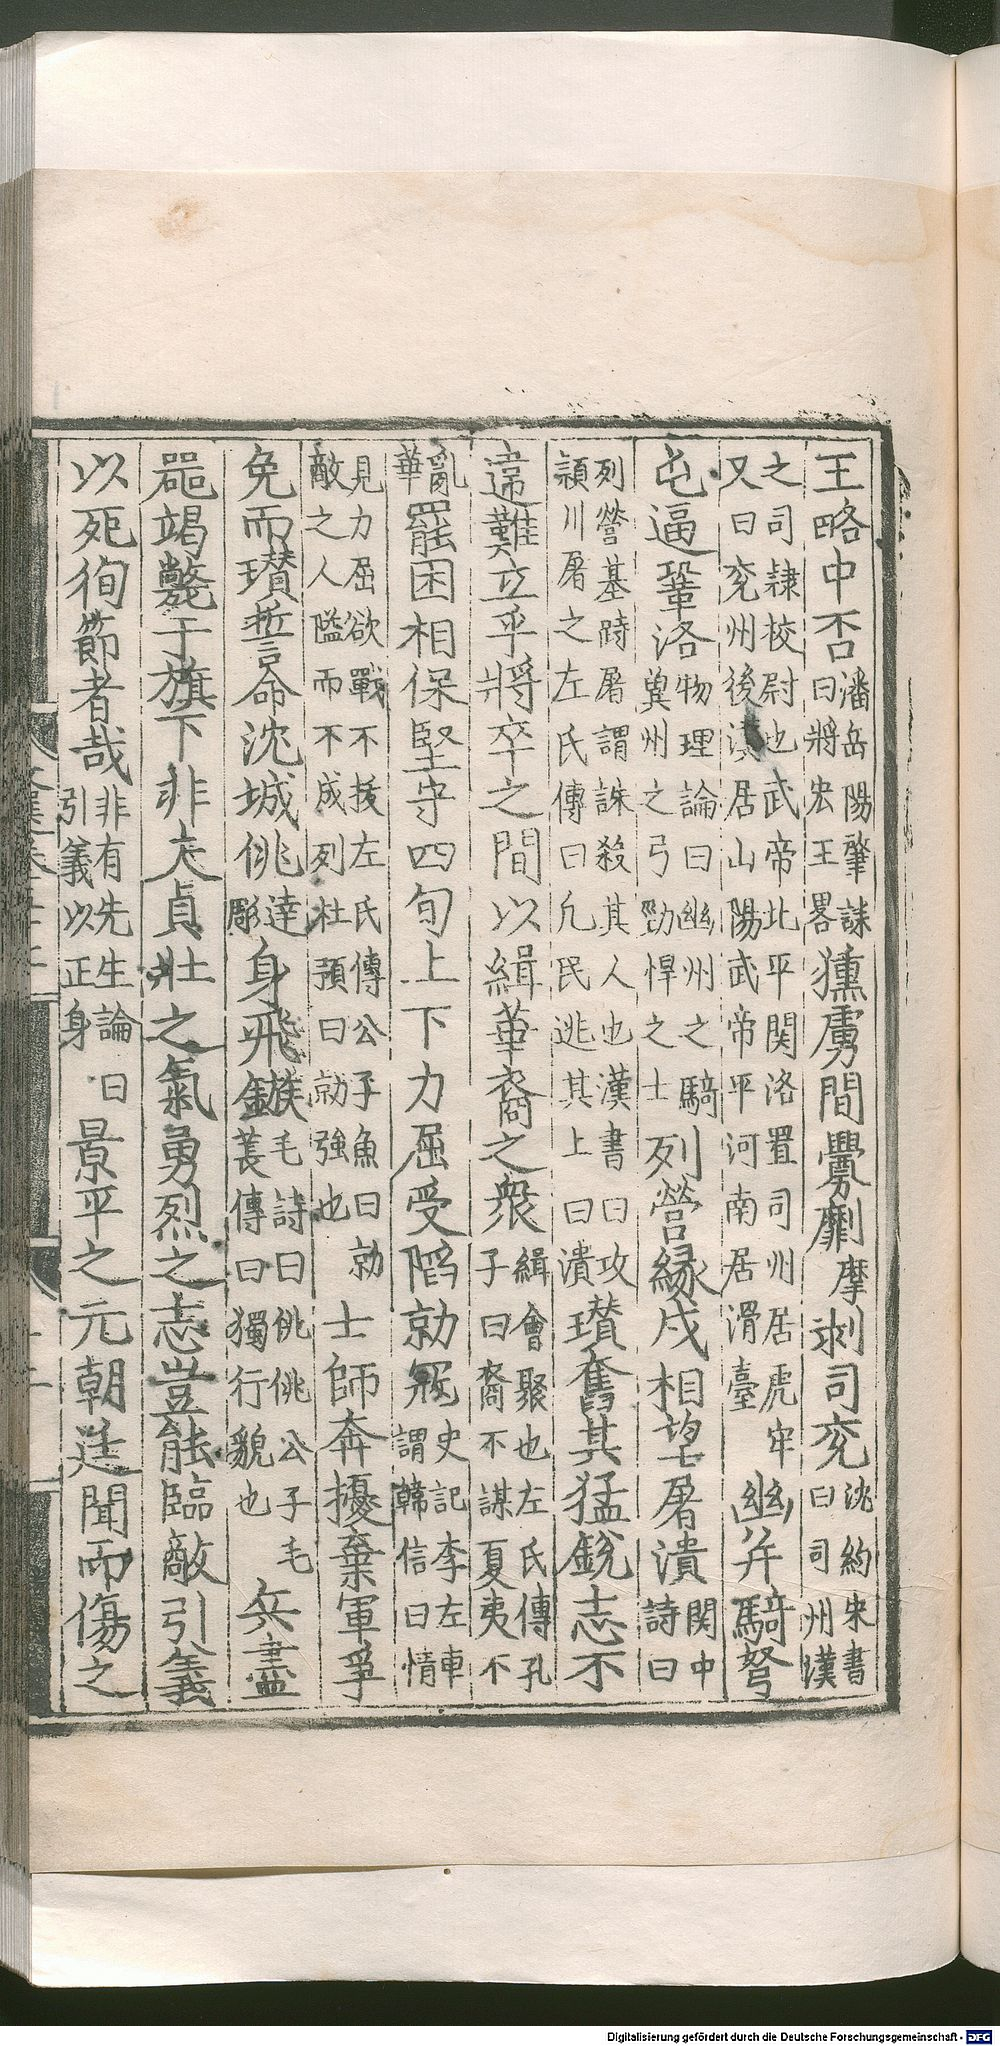 王略中否潘岳陽肇誄曰將宏王畧獯虜間釁劘摩剥司兖沈約宋書曰司州漢
之司隷校尉也武帝北平関洛置司州居虎牢又曰兖州後漢居山陽武帝平河南居滑臺幽并騎弩
屯逼鞏洛物理論曰幽州之騎冀州之弓勁悍之士列營縁戍相望屠潰関中詩曰
列營基跱屠謂誅殺其人也漢書曰攻潁川屠之左氏傳曰凡民逃其上曰潰瓚奮其猛銳志不
違難立乎將卒之間以緝華裔之衆緝會聚也左氏傳孔子曰裔不謀夏夷不
亂華罷困相保堅守四旬上下力屈受陷勍冦史記李左車謂韓信曰情
見力屈欲戰不拔左氏傳公子魚曰勍敵之人隘而不成列杜預曰勍強也士師奔擾棄軍爭
免而瓚誓命沈城佻達彫身飛鏃毛詩曰佻佻公子毛萇傳曰獨行貌也兵盡
噐竭斃于旗下非夫貞壯之氣勇烈之志豈能臨敵引義
以死徇節者哉非有先生論曰引義以正身景平之元朝廷聞而傷之
Digitalisierung gefördert durch die Deutsche Forschungsgemeinschaft - DFG